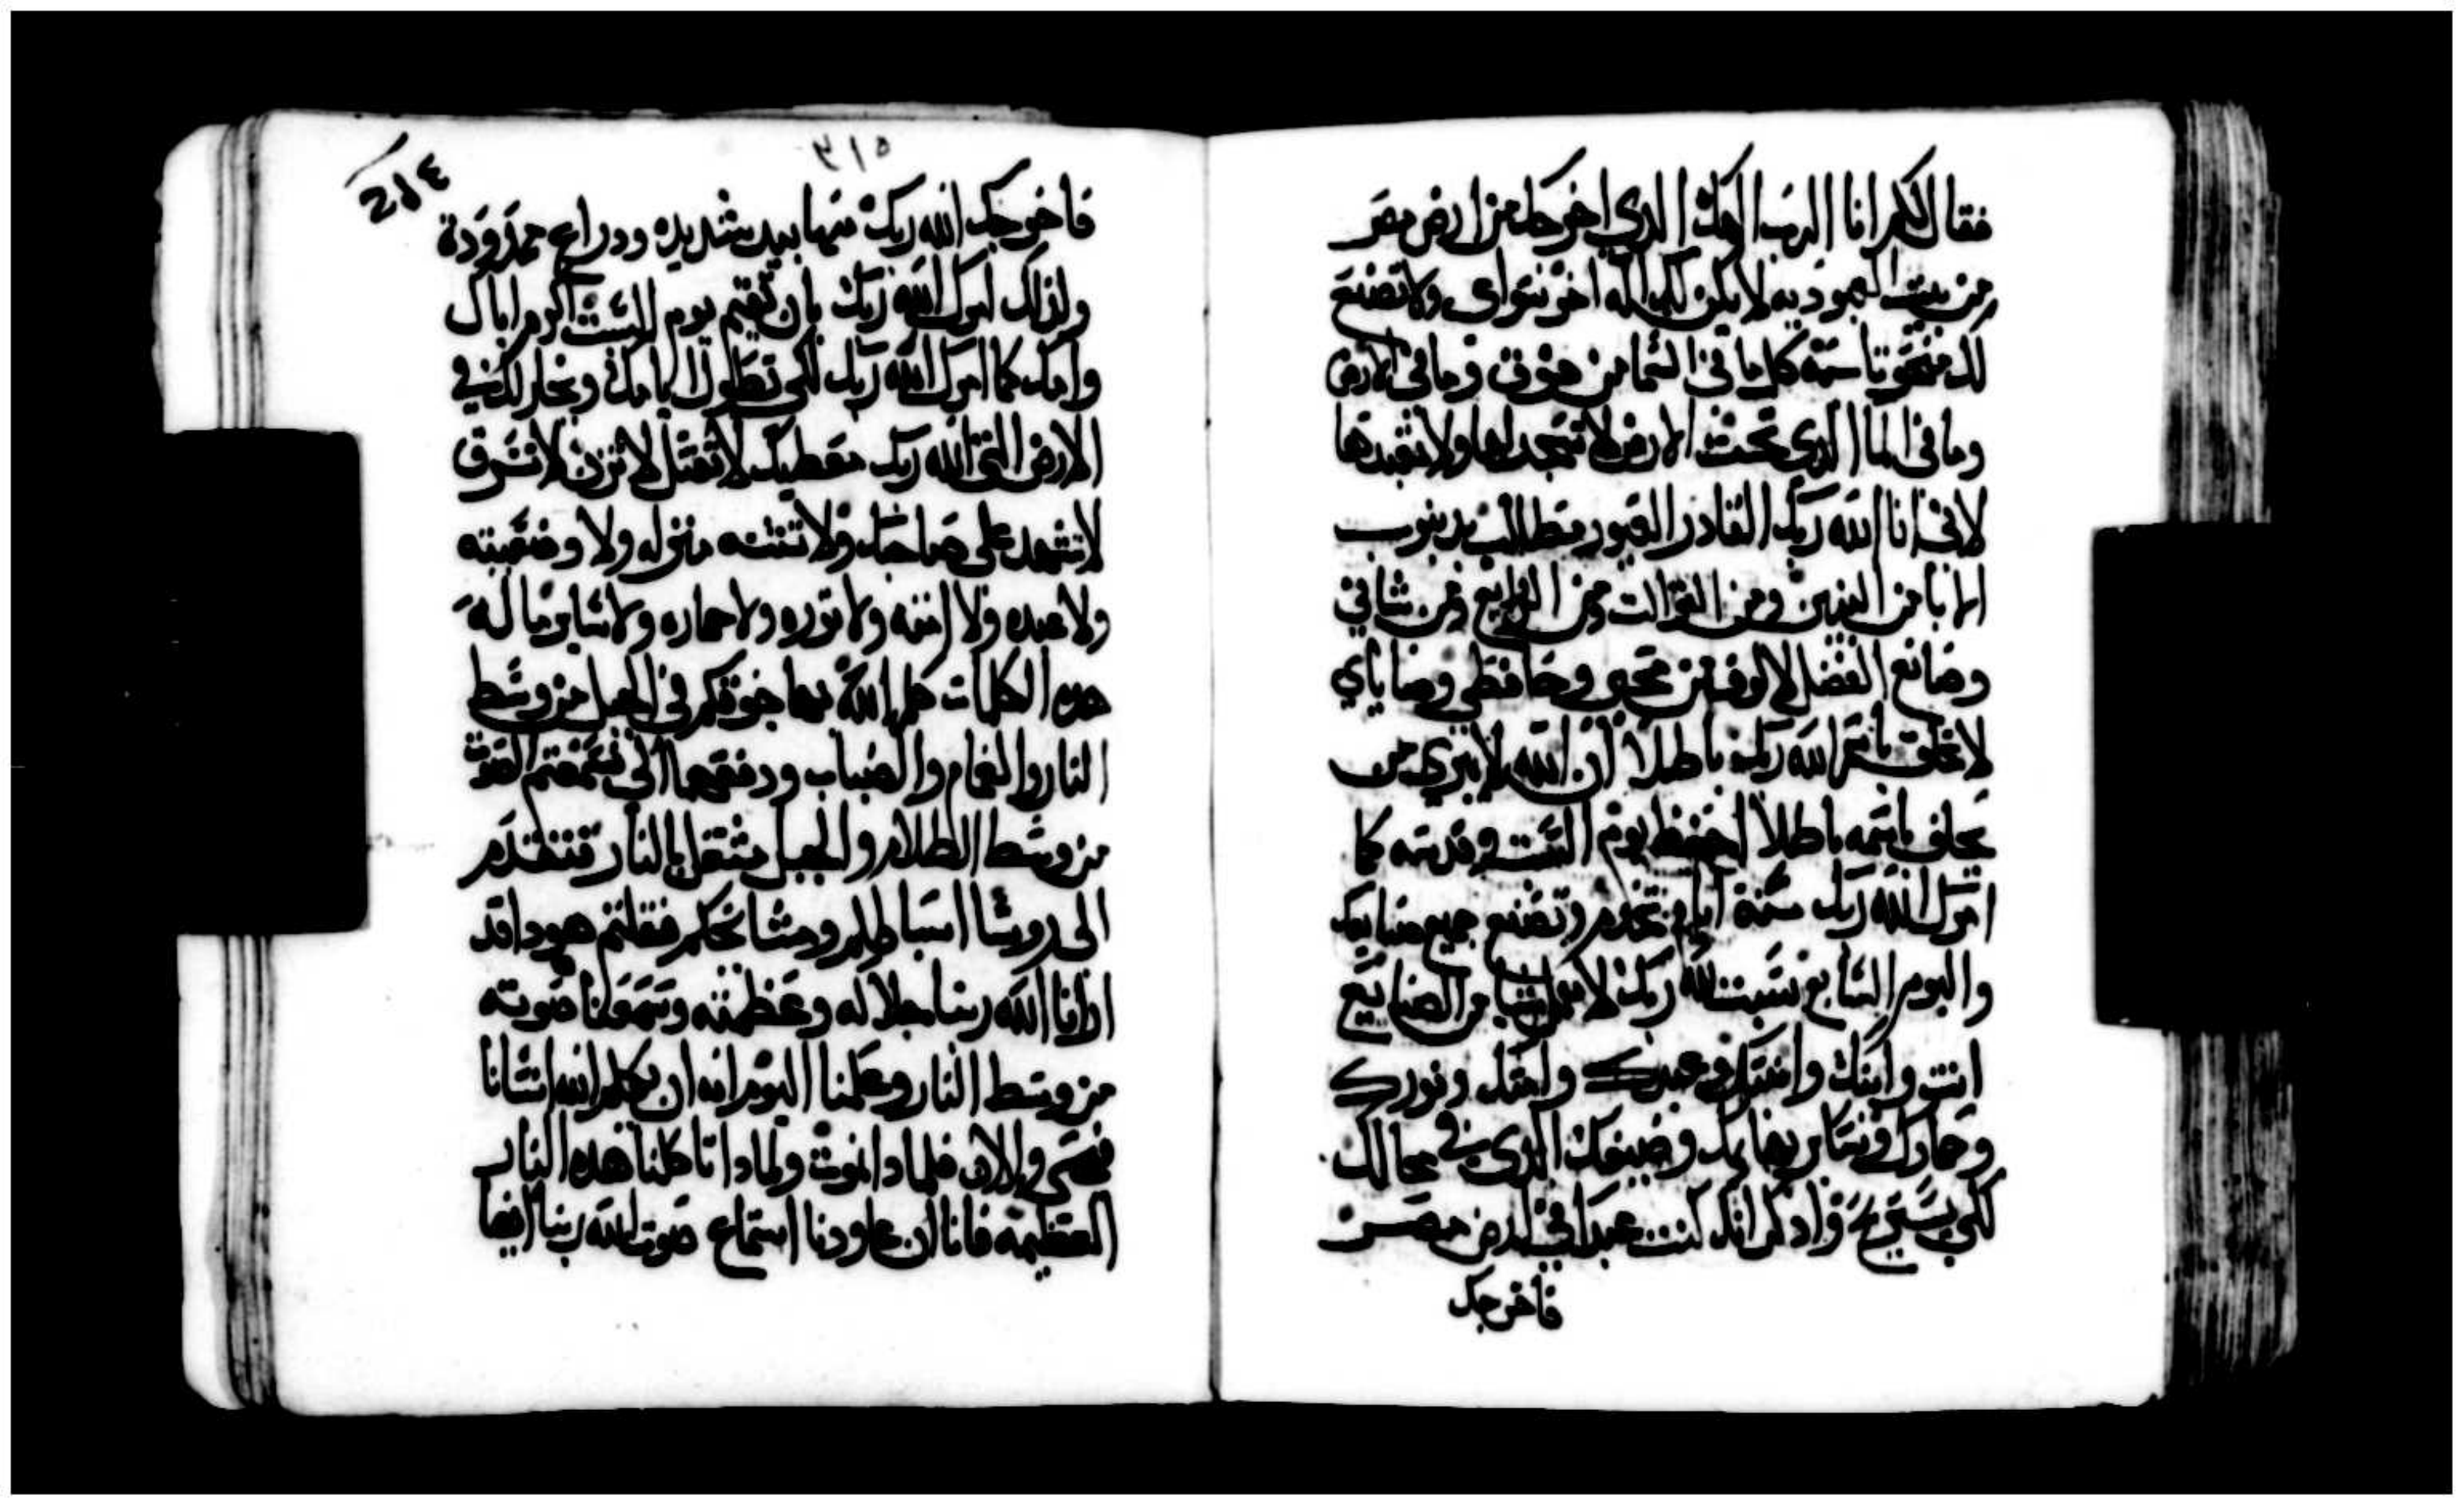 فقال لكم انا الرب الهك الدي اخرجك من ارض مصر
من بيت العبوديه لا يكن لك اله اخر سواى ولا تصنع
لك منحوتا شبه كل ما في السما من فوق وما في الارض
وما في الما الدى تحت الارض لا تسجد لها ولا تعبدها
لانى انا الله ربك القادر الغيور مطالب بدنوب
الابا من البنين ومن التوالت ومن الروابع ومن شاني
وصانع الفضل لالوف من محبى وحافظي وصاياي
لا تحلف باسم الله ربك باطلا ان الله لا يبري من
يحلف باسمه باطلا احفظ يوم السبت وقدسه كما
امرك الله ربك ستة ايام تخدم وتصنع جميع صنايعك
واليوم السابع سبت لله ربك لا تعمل شيا من الصنايع
انت وابنك وابنتك وعبدك وامتك وتورك
وحمارك وساير بهايمك وضيفك الدى في محالك
لكي يستريح وادكر انك كنت عبدا في ارض مصر
فاخرجك
٣١٥
فاخرجك الله ربك منها بيد شديده ودراع ممدودة
ولدلك امرك الله ربك بان تقيم يوم السبت اكرم اباك
وامك كما امرك الله ربك لكى تطول ايامك وبخير لك في
الارض التى الله ربك معطيك لا تقتل لا تزن لا تسرق
لا تشهد على صاحبك ولا تشته منزله ولا وضيعته
ولا عبده ولا امته ولا توره ولا حماره ولا ساير ما له
هده الكلمات كلم الله بها جوقكم في الجبل من وسط
النار والغمام والضباب ودفعهما الي فسمعتم الصوت
من وسط الظلام والجبل مشتعل بالنار فتقدم
الى روسا اسباطكم ومشايخكم فقلتم هودا قد
ارانا الله ربنا جلاله وعظمته وسمعنا صوته
من وسط النار وعلمنا اليوم انه ان يكلم الله انسانا
فيحى والان فلمادا نموت ولمادا تاكلنا هده النار
العظيمه فانا ان عاودنا استماع صوت الله ربنا ايضا